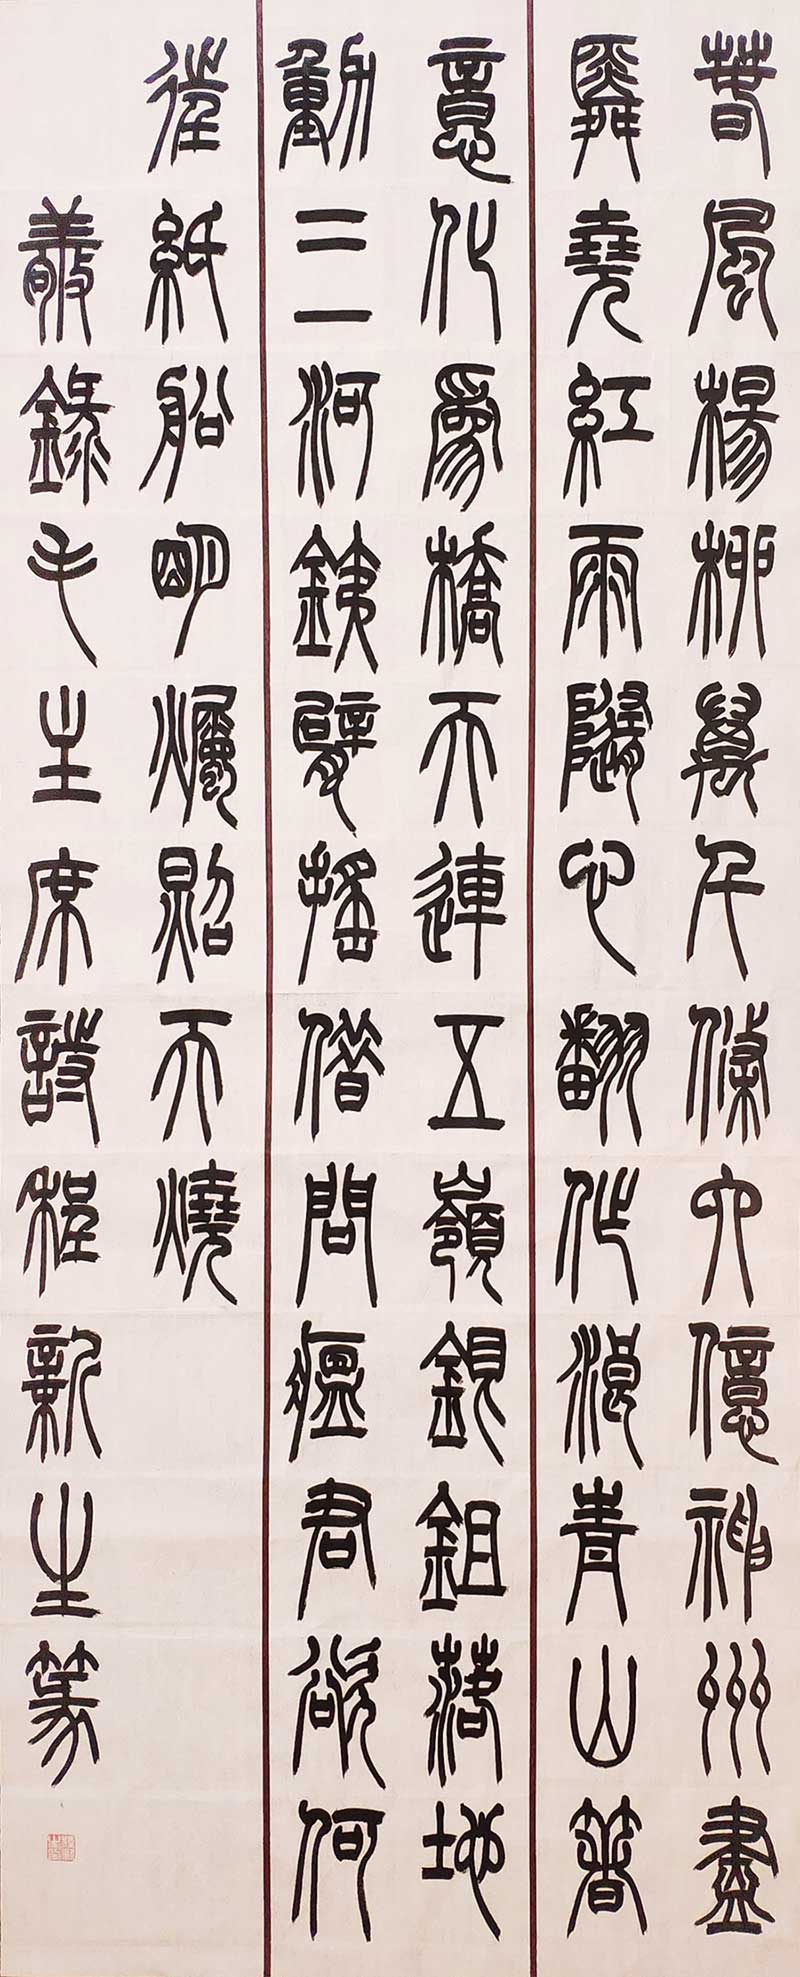 春風楊柳萬千條六億神州盡
舜堯紅雨隨心翻作浪青山箸
意化爲橋天連五嶺銀鉏落地
動三河銕臂搖借問瘟君欲何
往紙船明燭照天燒
敬錄毛主席詩程新生篆